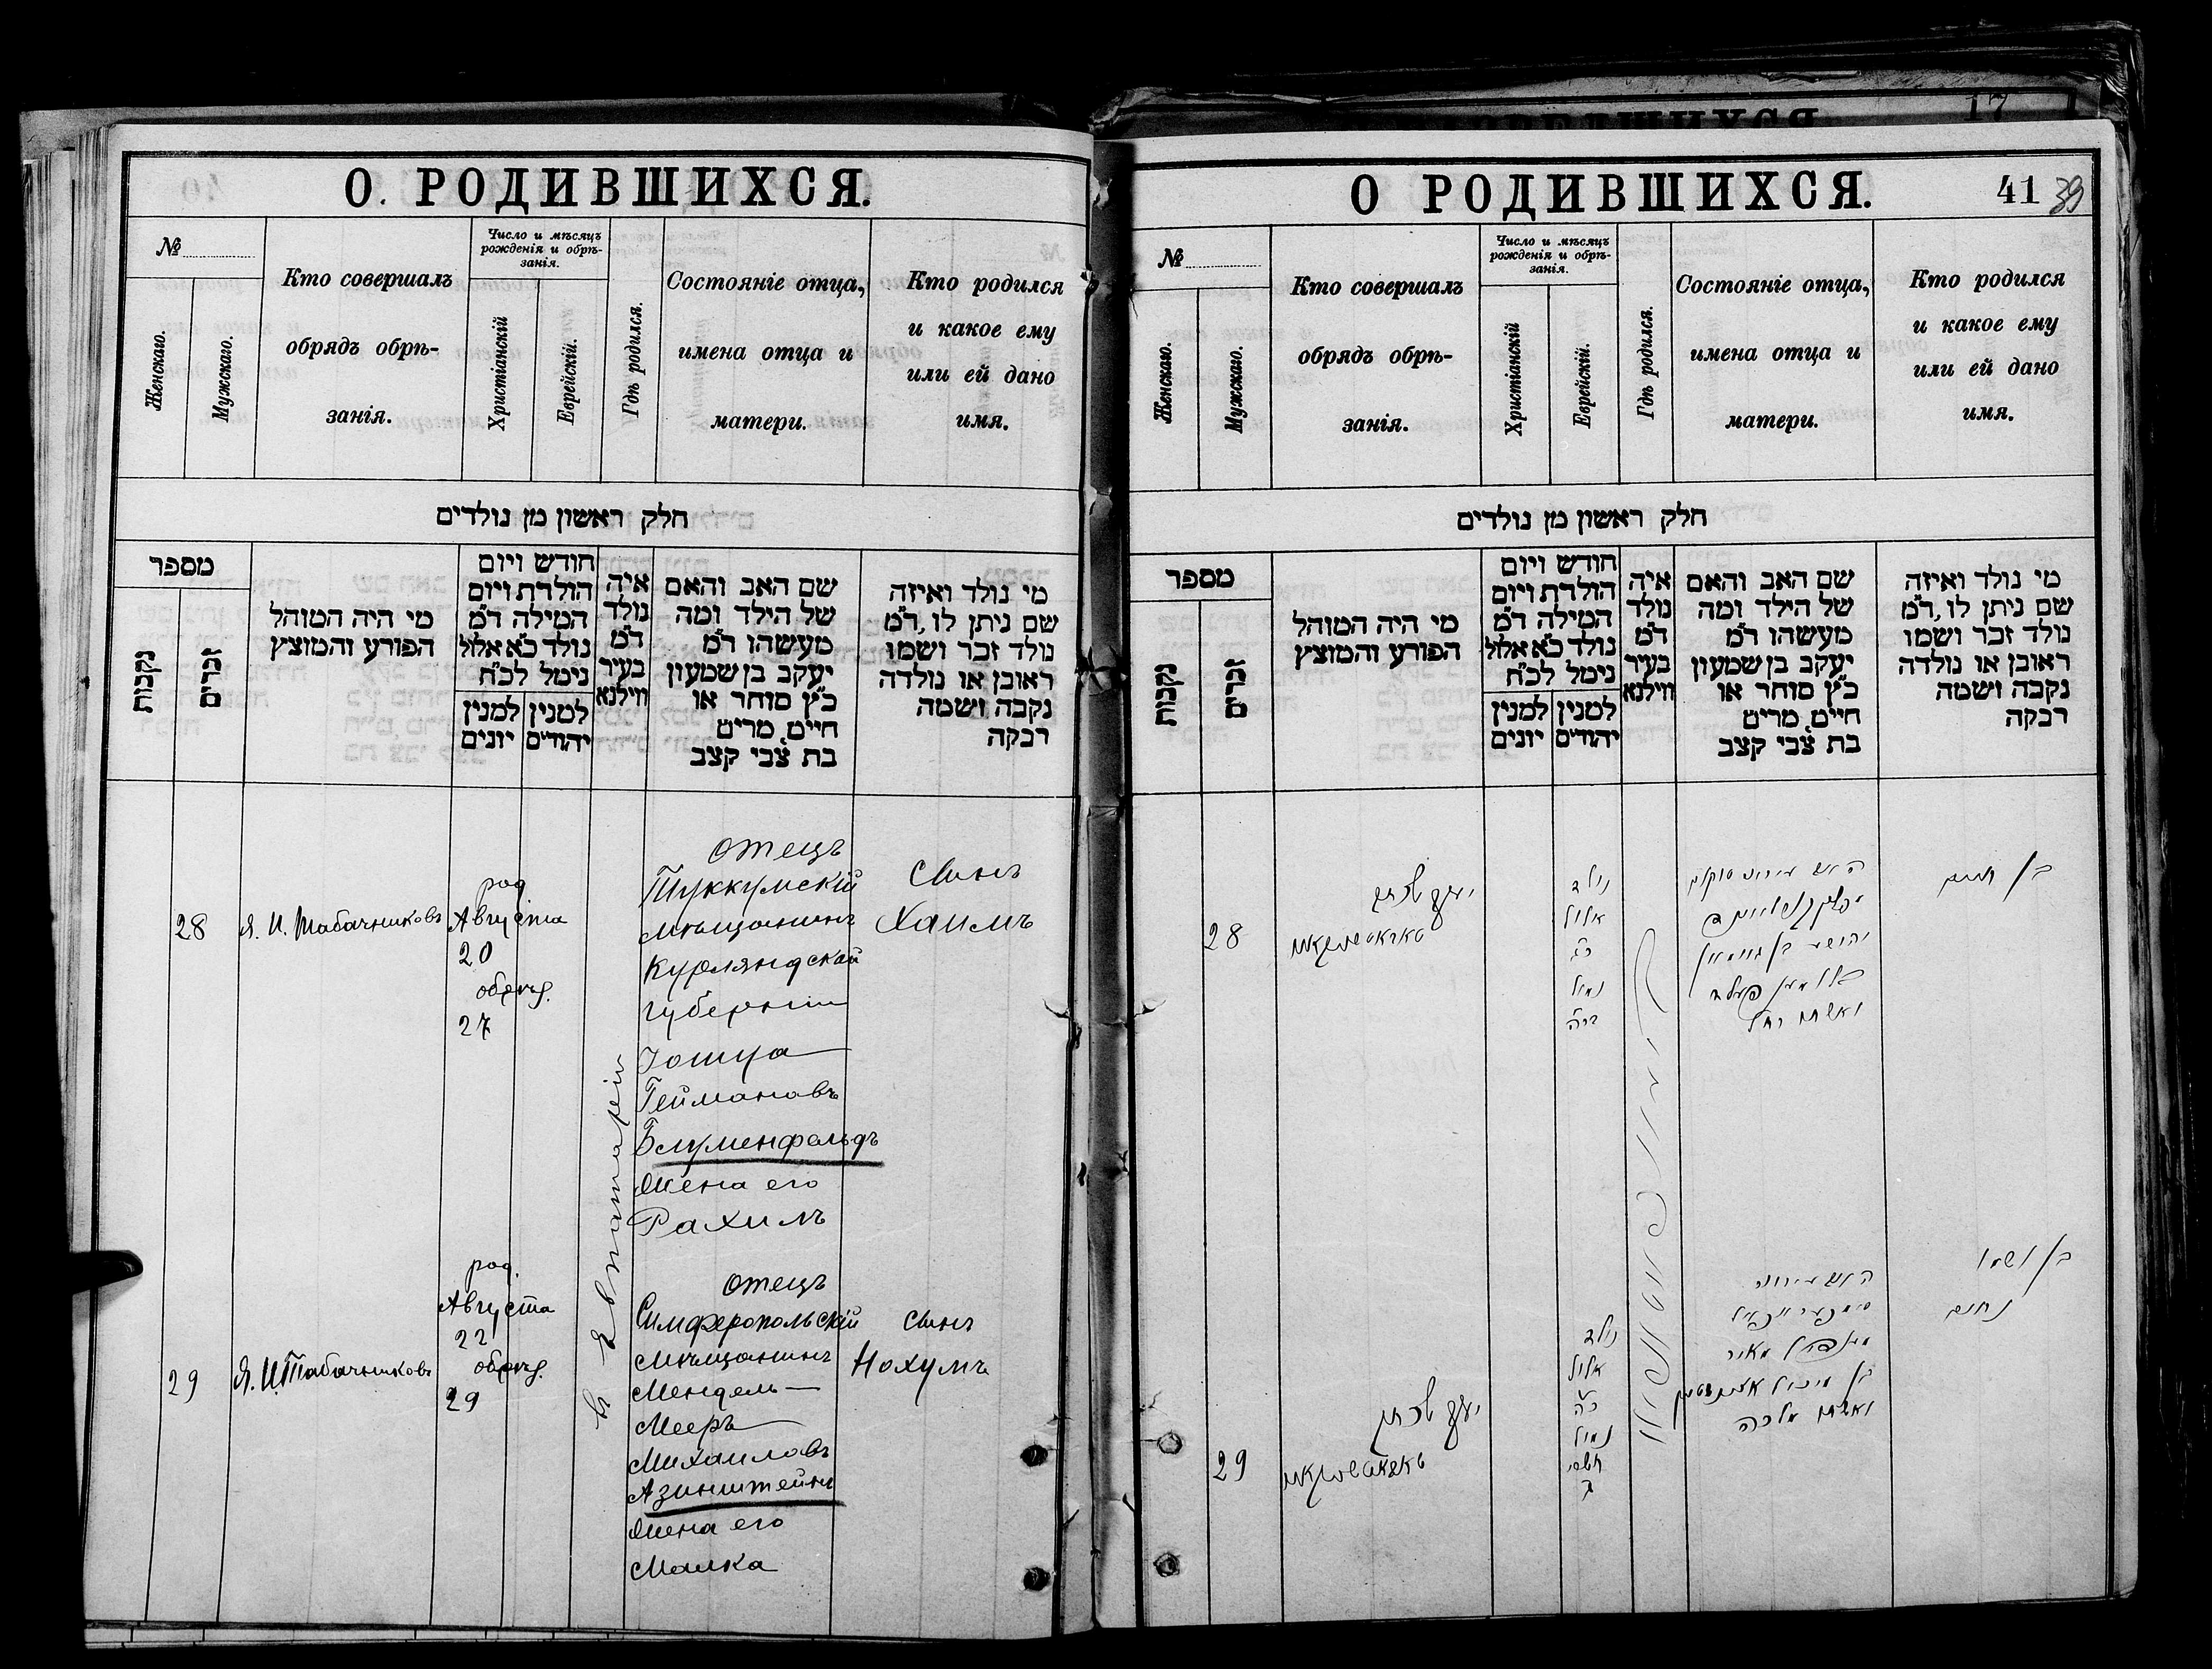 О. РОДИВШИХСЯ.
№
Женскаго.
Мужскаго.
Кто совершалъ
обрядъ обрѣ-
занія.
Число и мѣсяцъ
рожденія и обрѣ-
занія.
Христіанскій
Еврейскій.
Гдѣ родился.
Состояніе отца,
имена отца и
матери.
Кто родился
и какое ему
или ей дано
имя.
חלק ראשון מן נולדים
מספר
נקבות
זכרים
מי היה המוהל
הפורע והמוצץ
חודש ויום
הולדת ויום
המילה ד״מ
נולד כ״א אלול
נימל לכ״ח
למנין יונים
למנין יהודים
איה
נולד
ד״מ
בעיר
ווילנא
שם האב והאם
של הילד ומה
מעשהו ד״מ
יעקב בן שמעון
כ״ץ סוחר או
חיים, מרים
בת צבי קצב
מי נולד ואיזה
שם ניתן לו, ד״מ
נולד זכר ושמו
ראובן או נולדה
נקבה ושמה
רבקה
28
Я. И. Табачниковъ
род
Августа
20
обрѣз.
27
в Евпаторіи
отецъ
Туккумскій
мѣщанинъ
Курляндской
губерніи
Іошуа
Геймановъ
Блуменфельдъ
Жена его
Рахиль
Сынъ
Хаимъ
29
Я. И. Табачниковъ
род.
Августа
22
обрѣз.
29
отецъ
Симферопольскій
мѣщанинъ
Мендель
Мееръ
Михаиловъ
Азинштейнъ
Жена его
Малка
сынъ
Нохумъ
О РОДИВШИХСЯ.
41 39
№
Женскаго.
Мужскаго.
Кто совершалъ
обрядъ обрѣ-
занія.
Число и мѣсяцъ
рожденія и обрѣ-
занія.
Христіанскій
Еврейскій.
Гдѣ родился.
Состояніе отца,
имена отца и
матери.
Кто родился
и какое ему
или ей дано
имя.
חלק ראשון מן נולדים
מספר
נקבות
זכרים
מי היה המוהל
הפורע והמוצץ
חודש ויום
הולדת ויום
המילה ד״מ
נולד כ״א אלול
נימל לכ״ח
למנין יונים
למנין יהודים
איה
נולד
ד״מ
בעיר
ווילנא
שם האב והאם
של הילד ומה
מעשהו ד״מ
יעקב בן שמעון
כ״ץ סוחר או
חיים, מרים
בת צבי קצב
מי נולד ואיזה
שם ניתן לו, ד״מ
נולד זכר ושמו
ראובן או נולדה
נקבה ושמה
רבקה
28
נולד
אלול
נמול
ואשתו רחל
בן חיים
29
נולד
אלול
נמול
תשרי
ואשתו מלכה
בן ושמו
נחום